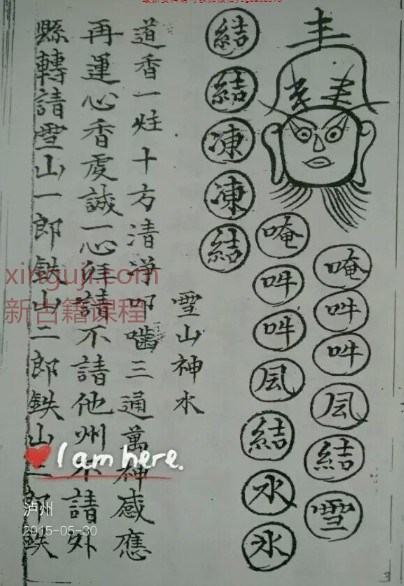 唵吽吽凬結雪
唵吽吽凬結水氷
結結凍凍結
雪山神水
道香一炷十方清淨叩嚙三通萬神感應
再運心香虔誠一心拜請不請他州不請外
縣轉請雪山一郎鉄山二郎鉄山三郎鉄
xinguji.com
新古籍课程
I am here.
泸州
2015-05-30
3